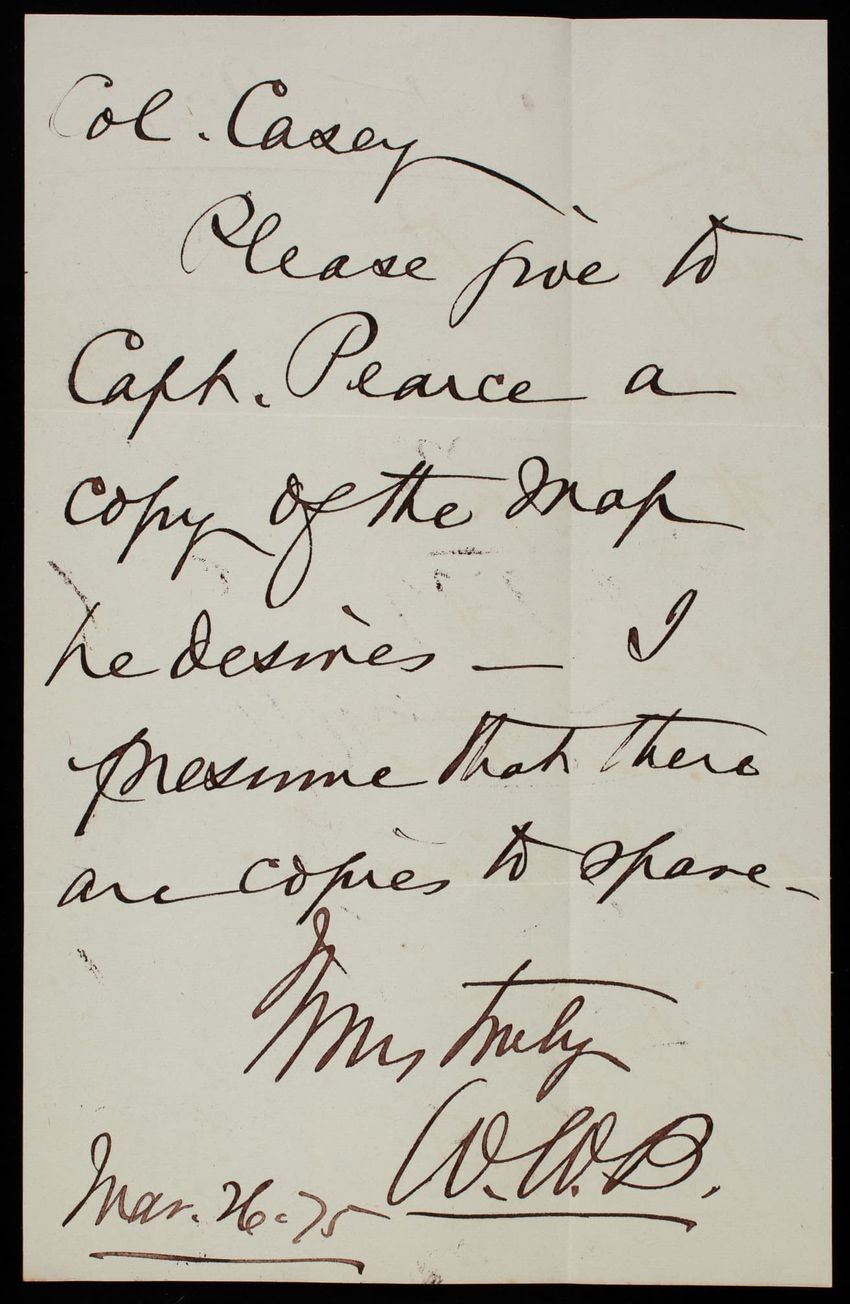 Col. Casey
Please give to
Capt. Pearce a
copy of the Map
he desires — I
presume that there
are copies to spare —
Yours truly
W. W. B.
Mar. 26 - 75